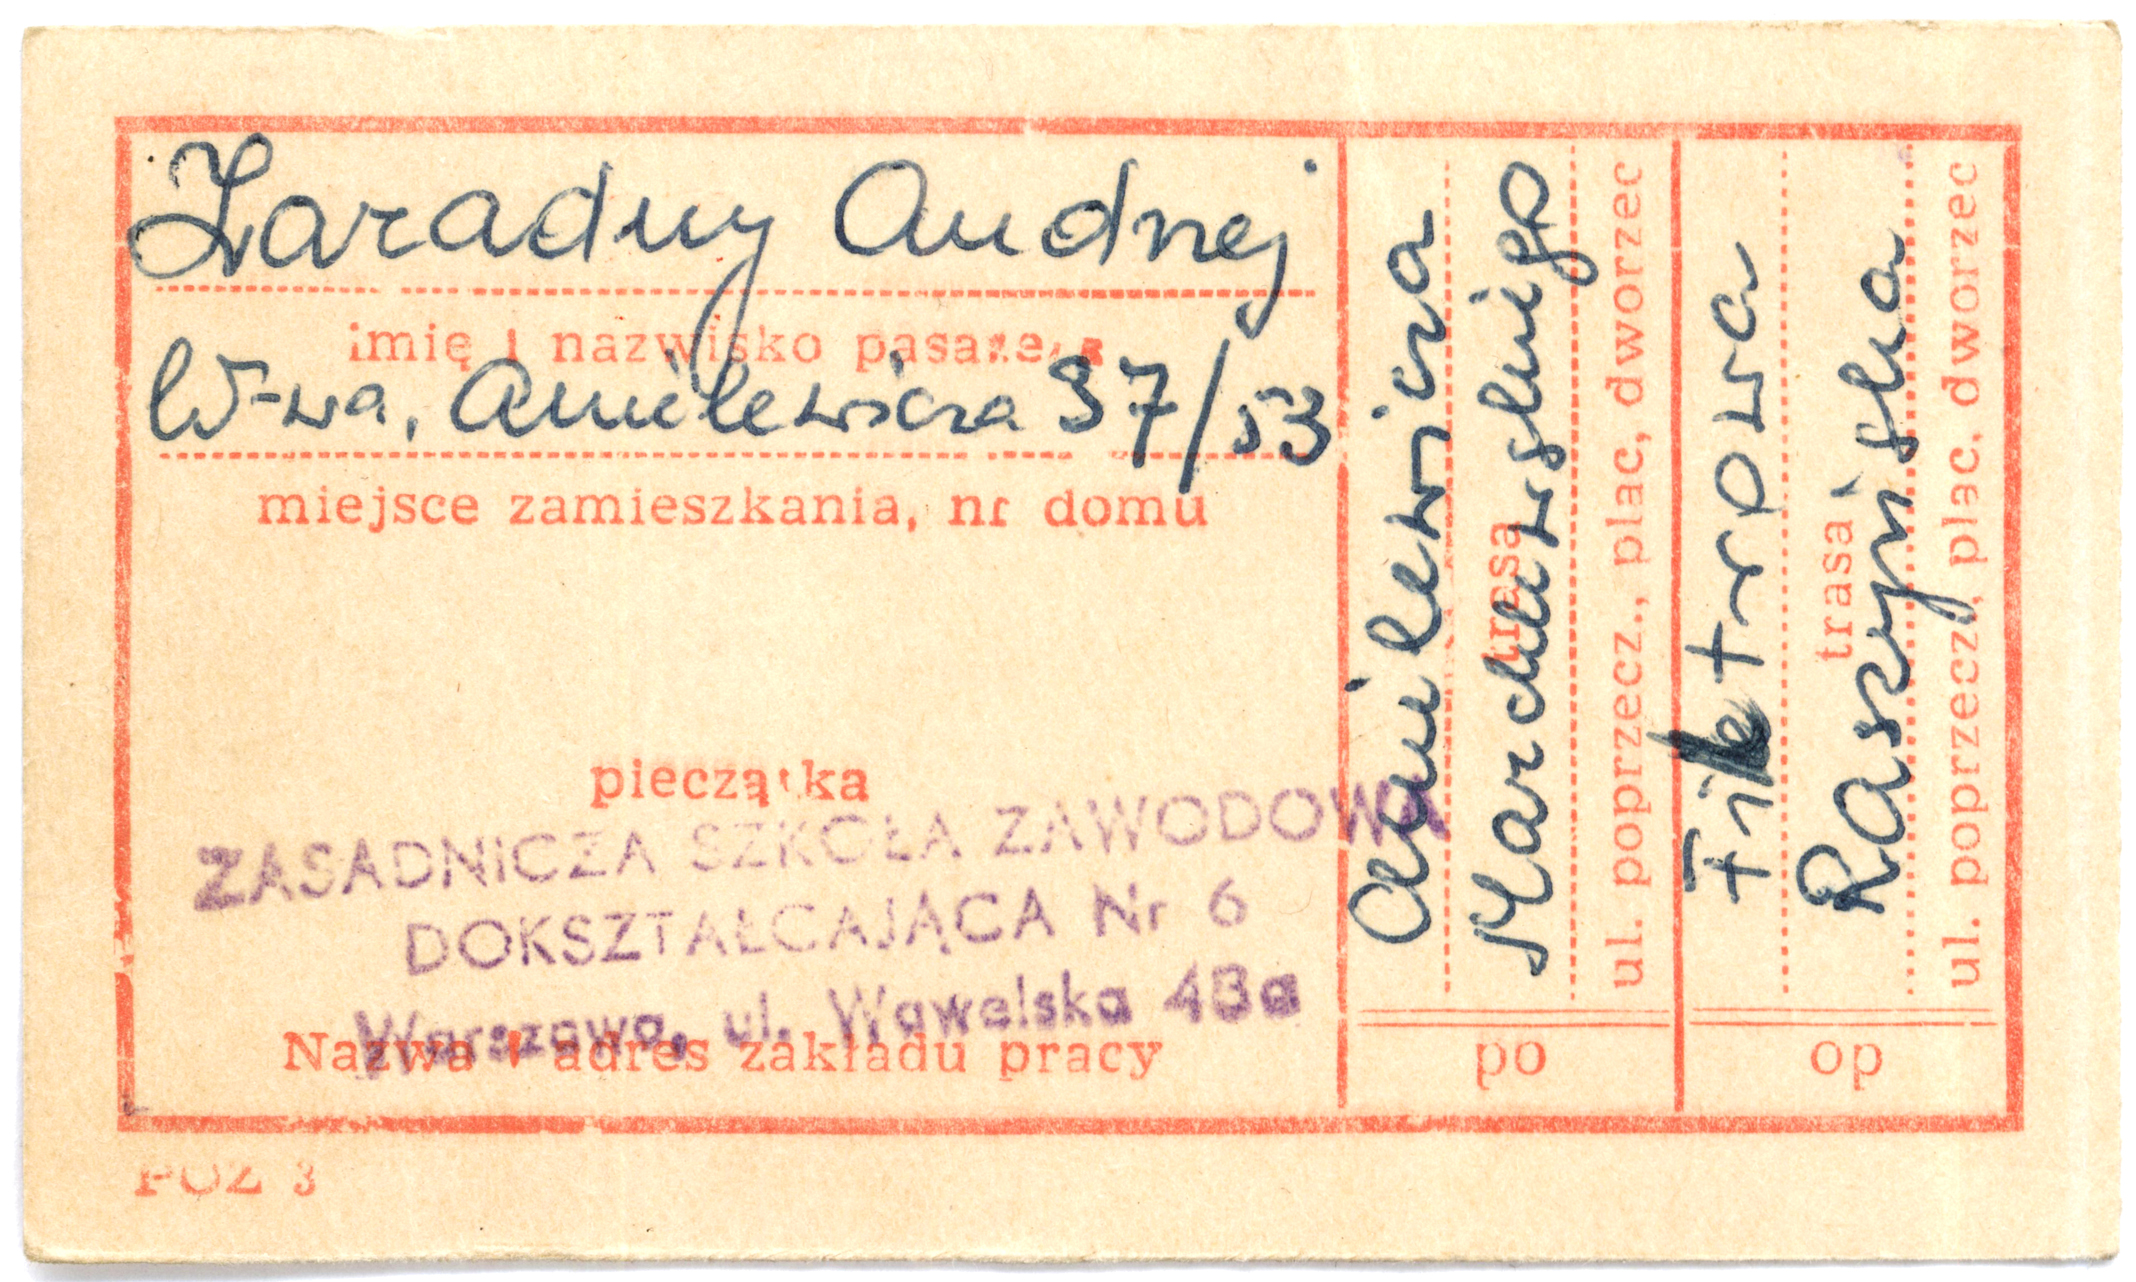 Zaradny Andrzej
imię i nazwisko pasażera
W-wa, Anielewicza 37/53
miejsce zamieszkania, nr domu
pieczątka
ZASADNICZA SZKOŁA ZAWODOWA
DOKSZTAŁCAJĄCA Nr 6
Warszawa, ul. Wawelska 48a
Nazwa i adres zakładu pracy
Anielewicza
trasa
Marchlewskiego
ul. poprzecz., plac, dworzec
po
Filtrowa
trasa
Raszyńska
ul. poprzecz., plac, dworzec
op
POZ 3